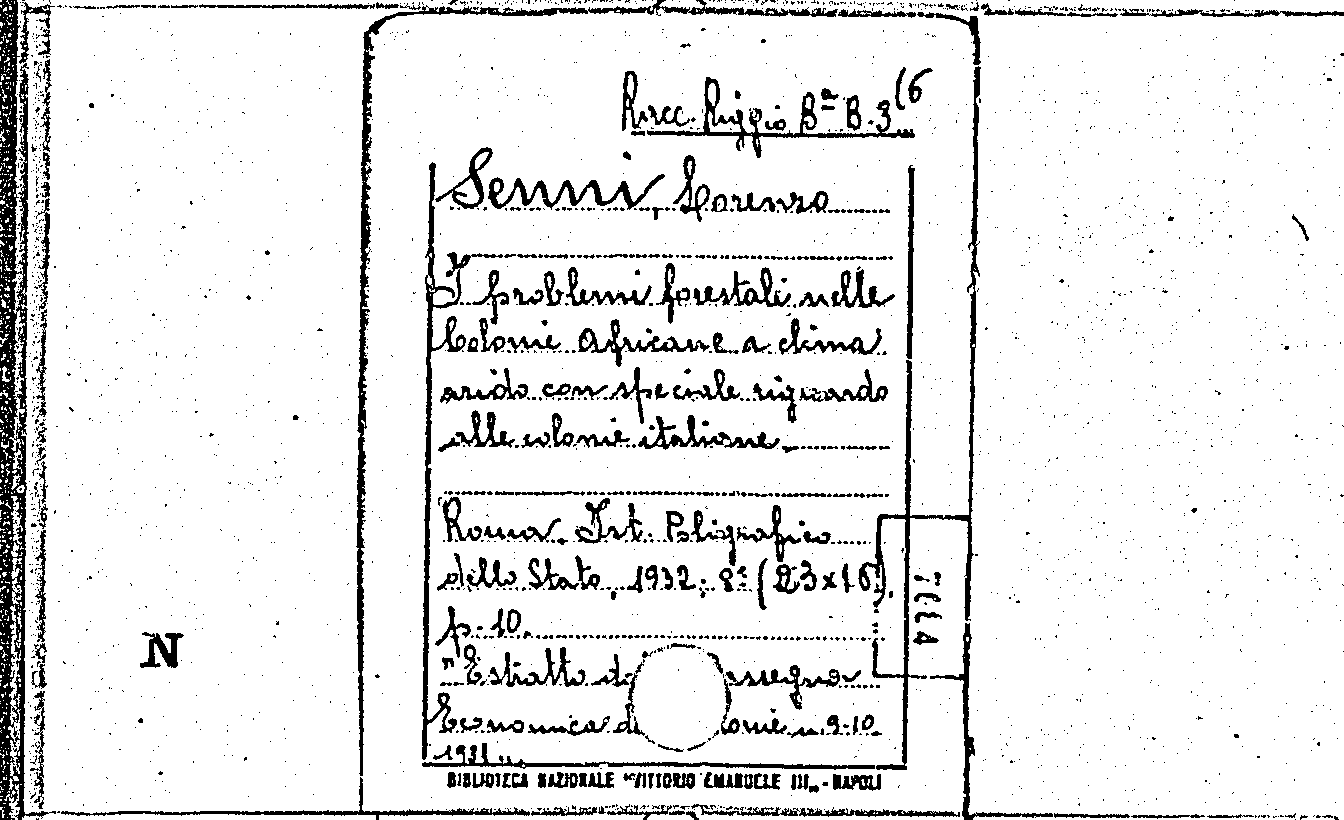 Racc. Riggio Bª B. 3(6
Senni, Lorenzo
I problemi forestali nelle
Colonie Africane a clima
arido con speciale riguardo
alle colonie italiane.
Roma. Ist. Poligrafico
dello Stato, 1932; 8º (23x16).
p. 10.
N
"Estratto da assegna
Economica d onie n. 9-10.
1931 "
BIBLIOTECA NAZIONALE "VITTORIO EMANUELE III„ - NAPOLI